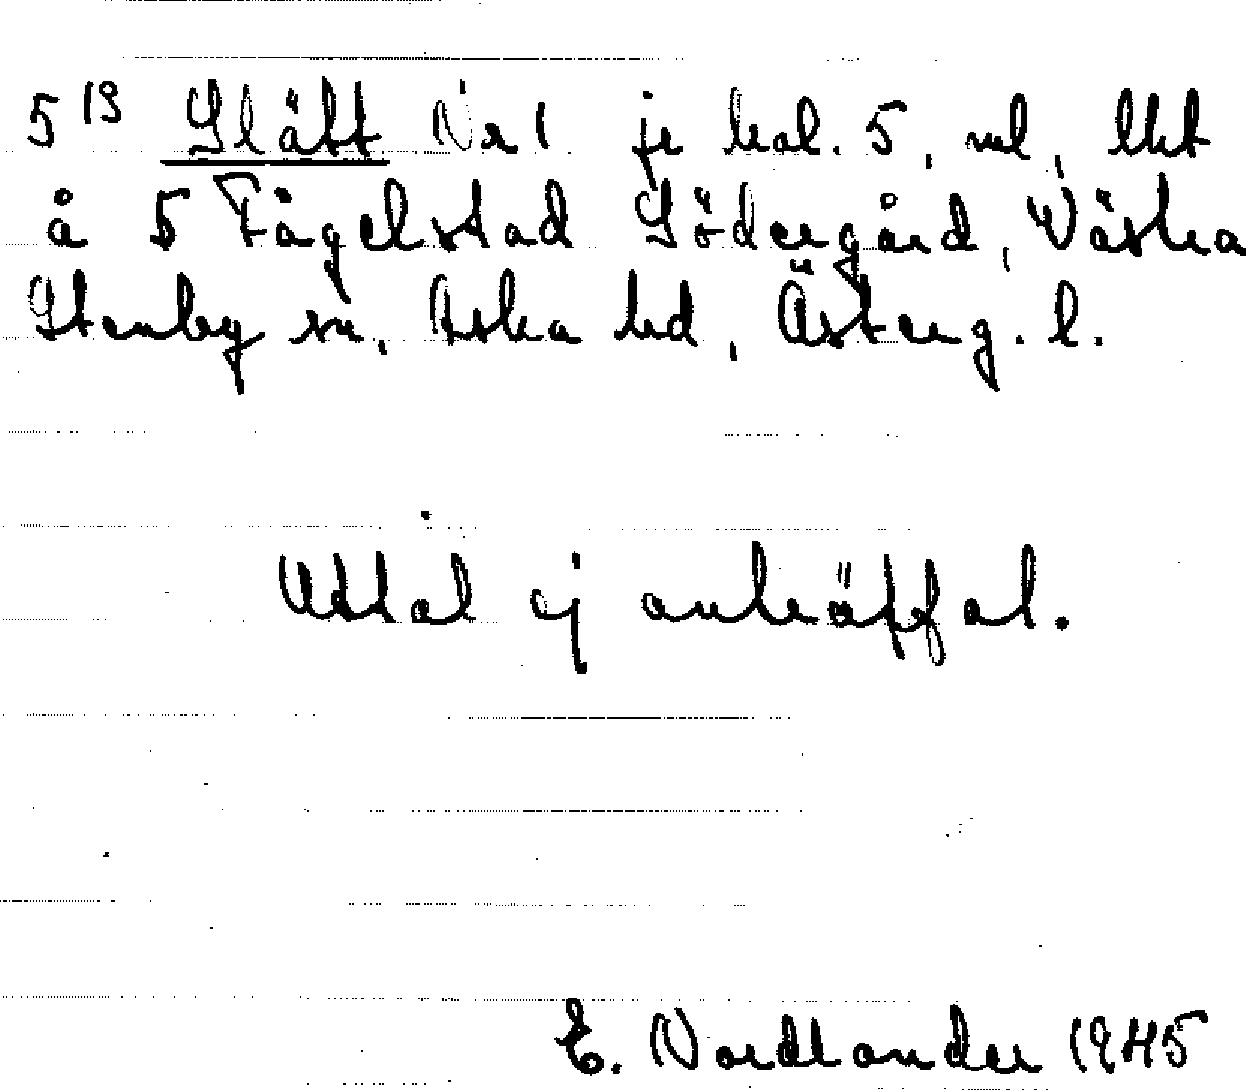 5¹³ Slätt Nr 1 je kal. 5, ml, lht
å 5 Fågelstad Södergård, Västra
Stenby sn, Aska hd, Österg. l.
Uttal ej anträffat.
E. Nordlander 1945